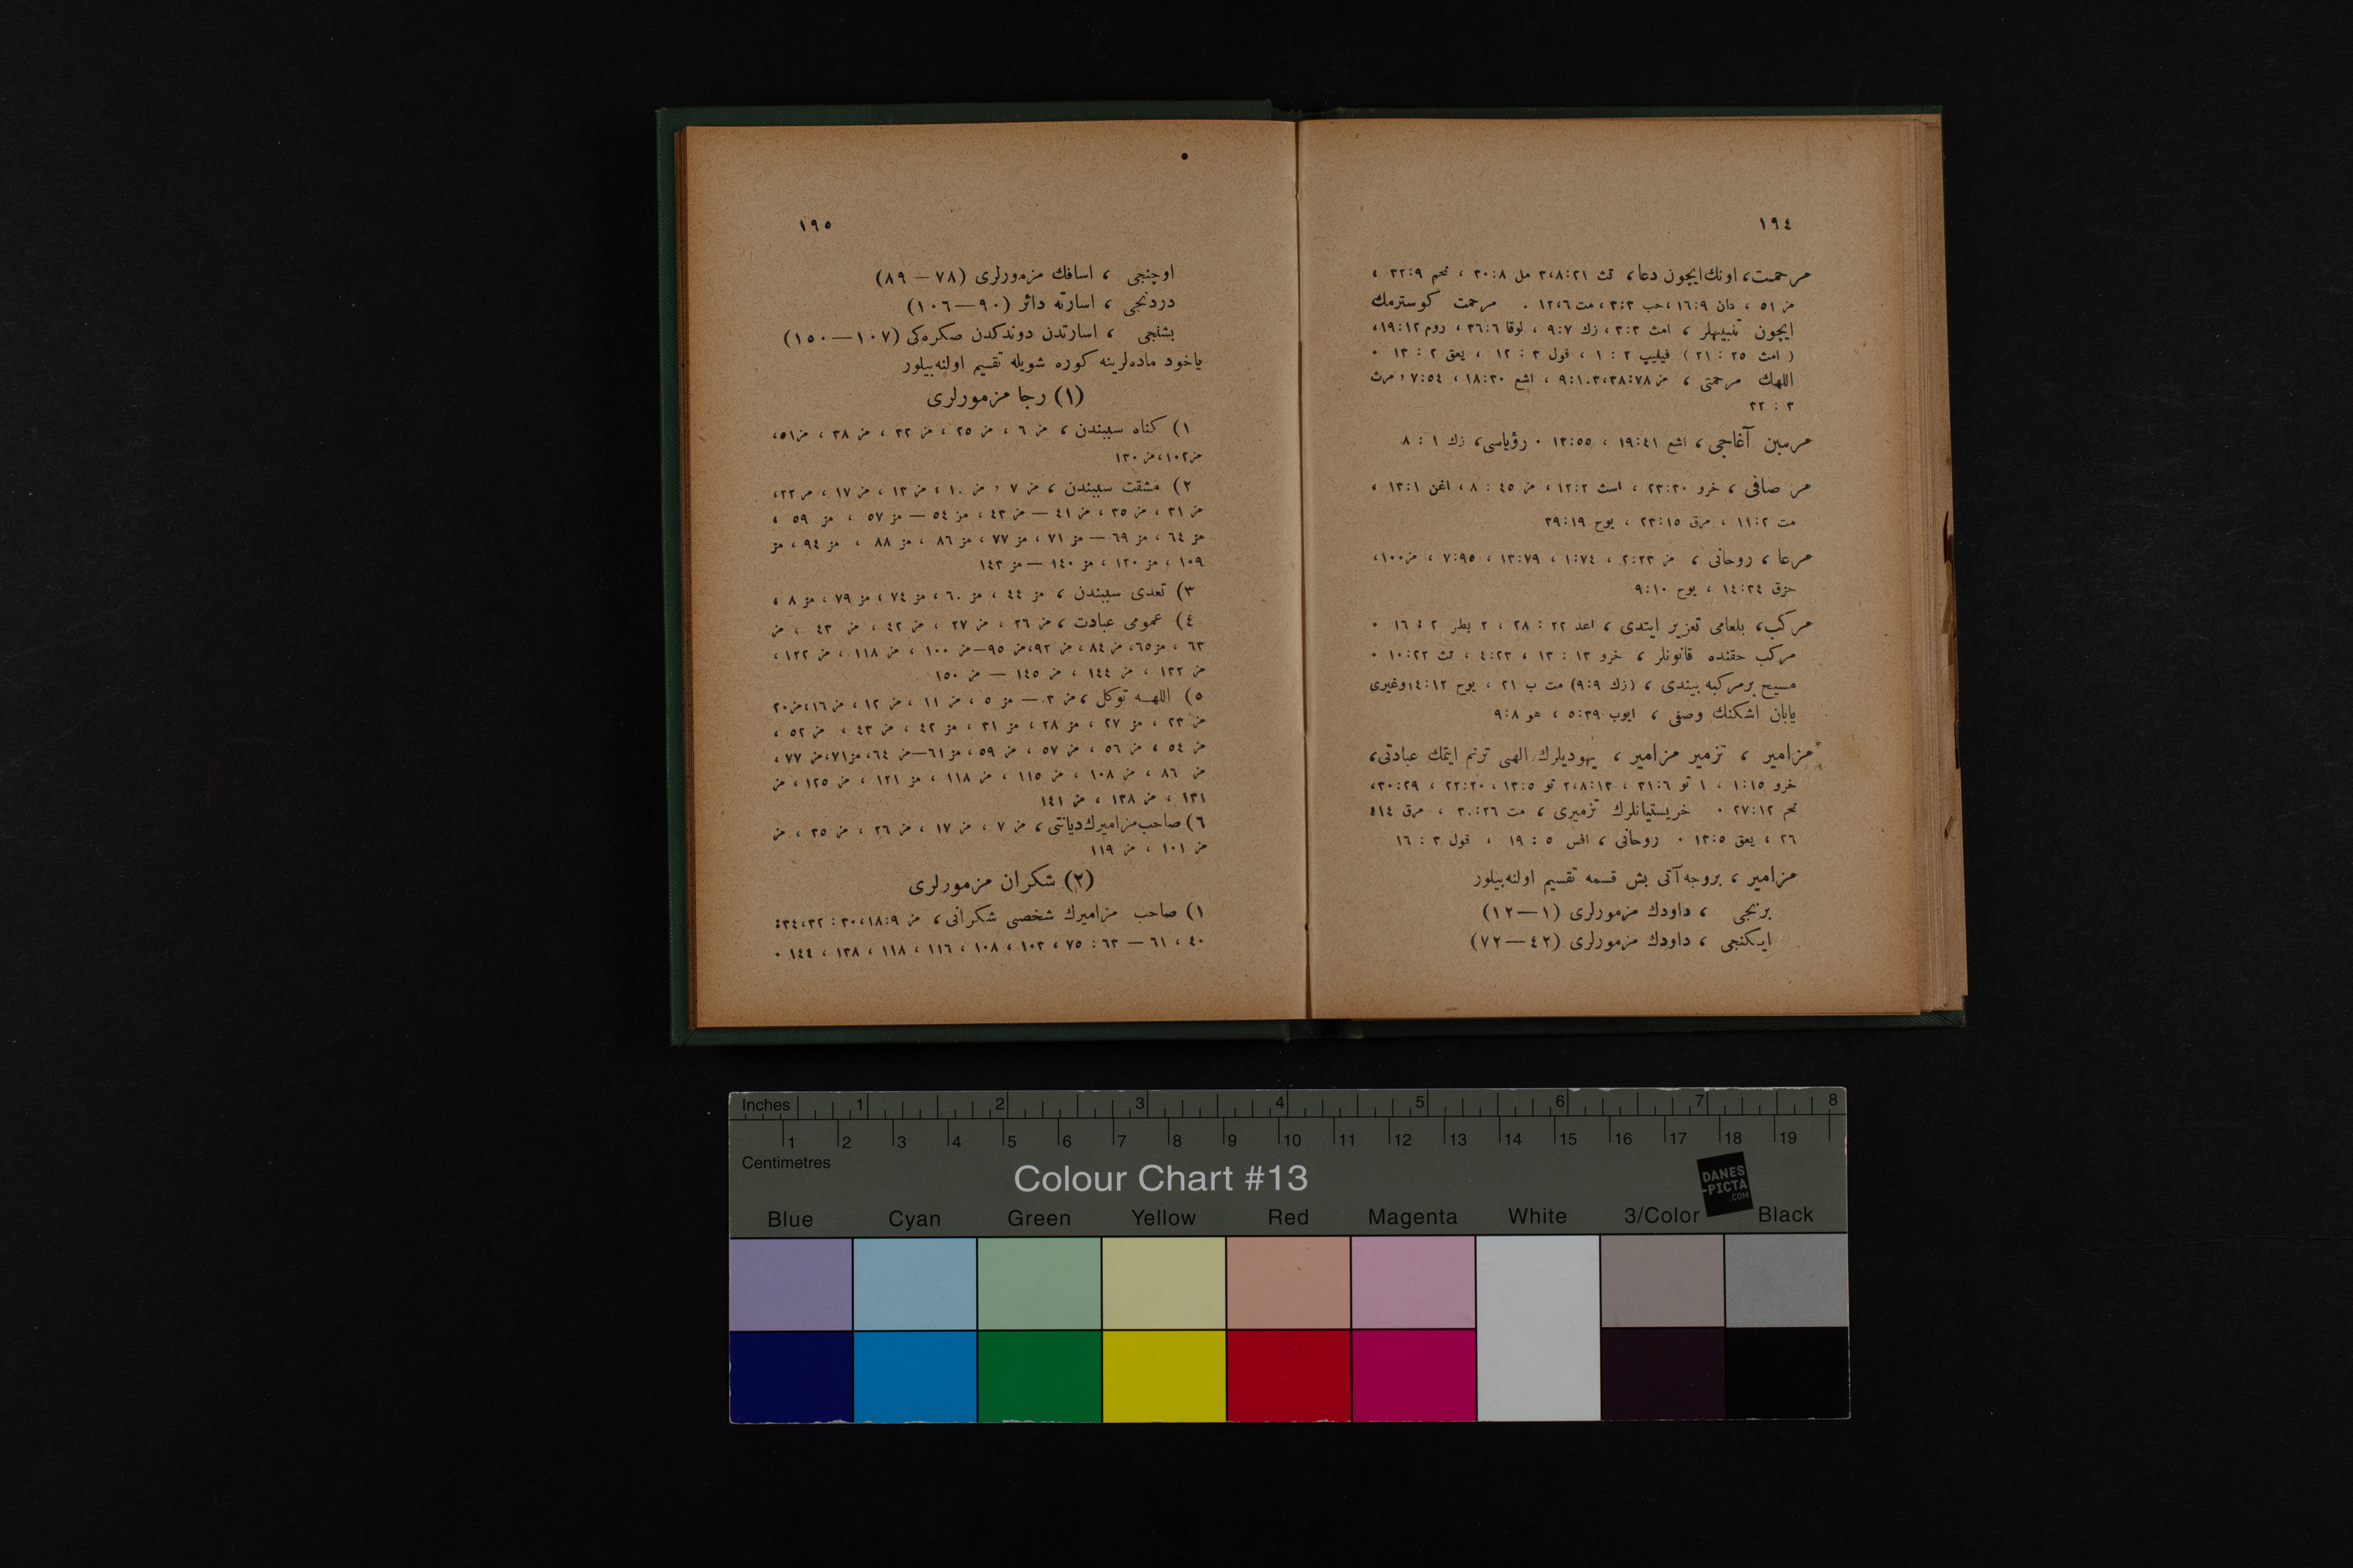 ١٩٤
مرحمت، اونك ايچون دعا، تث ٨:٢١،٣ مل ٣٠:٨ ، نحم ٣٢:٩ ،
مز ٥١ ، دان ١٦:٩ ،حب ٢:٣، مت ١٢،٦ . مرحمت كوسترمك
ايچون تنبيهلر ، امث ٣:٣ ، زك ٩:٧ ، لوقا ٣٦:٦ ، روم ١٩:١٢،
( امث ٢٥ : ٢١ ) فيليپ ٢ : ١ ، قول ٣ : ١٢ ، يعق ٢ : ١٣ .
اللهك مرحمتى ، مز ٣٨:٧٨،٩:١٠٣ ، اشع ١٨:٣٠ ، ٧:٥٤ ، مرث
٣ : ٢٢
مرسين آغاجى ، اشع ١٩:٤١ ، ١٣:٥٥ . رؤياسى، زك ١ : ٨
مر صافى ، خرو ٢٣:٣٠ ، است ١٢:٢ ، مز ٤٥ : ٨ ، اغن ١٣:١ ،
مت ١١:٢ ، مرق ٢٣:١٥ ، يوح ٣٩:١٩
مرعا ، روحانى ، مز ٢:٢٣ ، ١:٧٤ ، ١٣:٧٩ ، ٧:٩٥ ، مز ١٠٠،
حزق ١٤:٣٤ ، يوح ٩:١٠
مركب، بلعامى تعزير ايتدى ، اعد ٢٢ : ٢٨ ، ٢ بطر ٢ : ١٦ .
مركب حقنده قانونلر ، خرو ١٣ : ١٣ ، ٤:٢٣ ، تث ١٠:٢٢ .
مسيح برمركبه بيندى ، (زك ٩:٩) مت ب ٢١ ، يوح ١٤:١٢وغيرى
يابان اشكنك وصفى ، ايوب ٥:٣٩ ، هو ٩:٨
مزامير ، تزمير مزامير ، يهوديلرك الهى ترنم ايتمك عبادتى،
خرو ١:١٥ ، ١ تو ٣١:٦ ، ٨:١٣،٢ تو ١٣:٥ ، ٢٢:٢٠ ، ٣٠:٢٩،
نحم ٢٧:١٢ . خريستيانلرك تزميرى ، مت ٣٠:٢٦ ، مرق ١٤:
٢٦ ، يعق ١٣:٥ . روحانى ، افس ٥ : ١٩ ، قول ٣ : ١٦
مزامير ، بروجه آتى بش قسمه تقسيم اولنه‌بيلور
برنجى ، داودك مزمورلرى (١—١٢)
ايكنجى ، داودك مزمورلرى (٤٢—٧٢)
١٩٥
اوچنجى ، اسافك مزمورلرى (٧٨—٨٩)
دردنجى ، اسارته دائر (٩٠—١٠٦)
بشنجى ، اسارتدن دوندكدن صكره‌كى (١٠٧—١٥٠)
ياخود ماده‌لرينه كوره شويله تقسيم اولنه‌بيلور
(١) رجا مزمورلرى
١) كناه سببندن ، مز ٦ ، مز ٢٥ ، مز ٣٢ ، مز ٣٨ ، مز٥١،
مز١٠٢، مز ١٣٠
٢) مشقت سببندن ، مز ٧ ، مز ١٠ ، مز ١٣ ، مز ١٧ ، مز ٢٢،
مز ٣١ ، مز ٣٥ ، مز ٤١ — مز ٤٣ ، مز ٥٤ — مز ٥٧ ، مز ٥٩ ،
مز ٦٤ ، مز ٦٩ — مز ٧١ ، مز ٧٧ ، مز ٨٦ ، مز ٨٨ ، مز ٩٤ ، مز
١٠٩ ، مز ١٢٠ ، مز ١٤٠ — مز ١٤٣
٣) تعدى سببندن ، مز ٤٤ ، مز ٦٠ ، مز ٧٤ ، مز ٧٩ ، مز ٨ ،
٤) عمومى عبادت ، مز ٢٦ ، مز ٢٧ ، مز ٤٢ ، مز ٤٣ ، مز
٦٣ ، مز٦٥، مز ٨٤ ، مز ٩٢، مز ٩٥—مز ١٠٠ ، مز ١١٨ ، مز ١٢٢ ،
مز ١٣٢ ، مز ١٤٤ ، مز ١٤٥ — مز ١٥٠
٥) اللهه توكل ، مز ٣ — مز ٥ ، مز ١١ ، مز ١٢ ، مز ١٦، مز٢٠
مز ٢٣ ، مز ٢٧ ، مز ٢٨ ، مز ٣١ ، مز ٤٢ ، مز ٤٣ ، مز ٥٢ ،
مز ٥٤ ، مز ٥٦ ، مز ٥٧ ، مز ٥٩ ، مز ٦١—مز ٦٤ ، مز٧١، مز ٧٧ ،
مز ٨٦ ، مز ١٠٨ ، مز ١١٥ ، مز ١١٨ ، مز ١٢١ ، مز ١٢٥ ، مز
١٣١ ، مز ١٣٨ ، مز ١٤١
٦) صاحب مزاميرك ديانتى ، مز ٧ ، مز ١٧ ، مز ٢٦ ، مز ٣٥ ، مز
مز ١٠١ ، مز ١١٩
(٢) شكران مزمورلرى
١) صاحب مزاميرك شخصى شكرانى ، مز ١٨:٩،٣٠ : ٣٤،٣٢:
٤٠ ، ٦١ — ٦٣ : ٧٥ ، ١٠٣ ، ١٠٨ ، ١١٦ ، ١١٨ ، ١٣٨ ، ١٤٤ .
Inches 1 2 3 4 5 6 7 8
1 2 3 4 5 6 7 8 9 10 11 12 13 14 15 16 17 18 19
Centimetres
Colour Chart #13
DANES
-PICTA
.COM
Blue Cyan Green Yellow Red Magenta White 3/Color Black